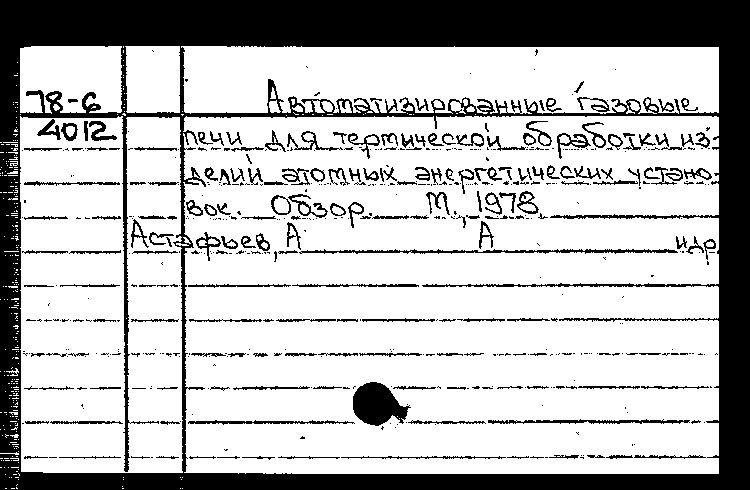 78-6 Автоматизированные газовые
4012 печи для термической обработки из-
делий атомных энергетических устано-
вок. Обзор. М., 1978
Астафьев, А А и др